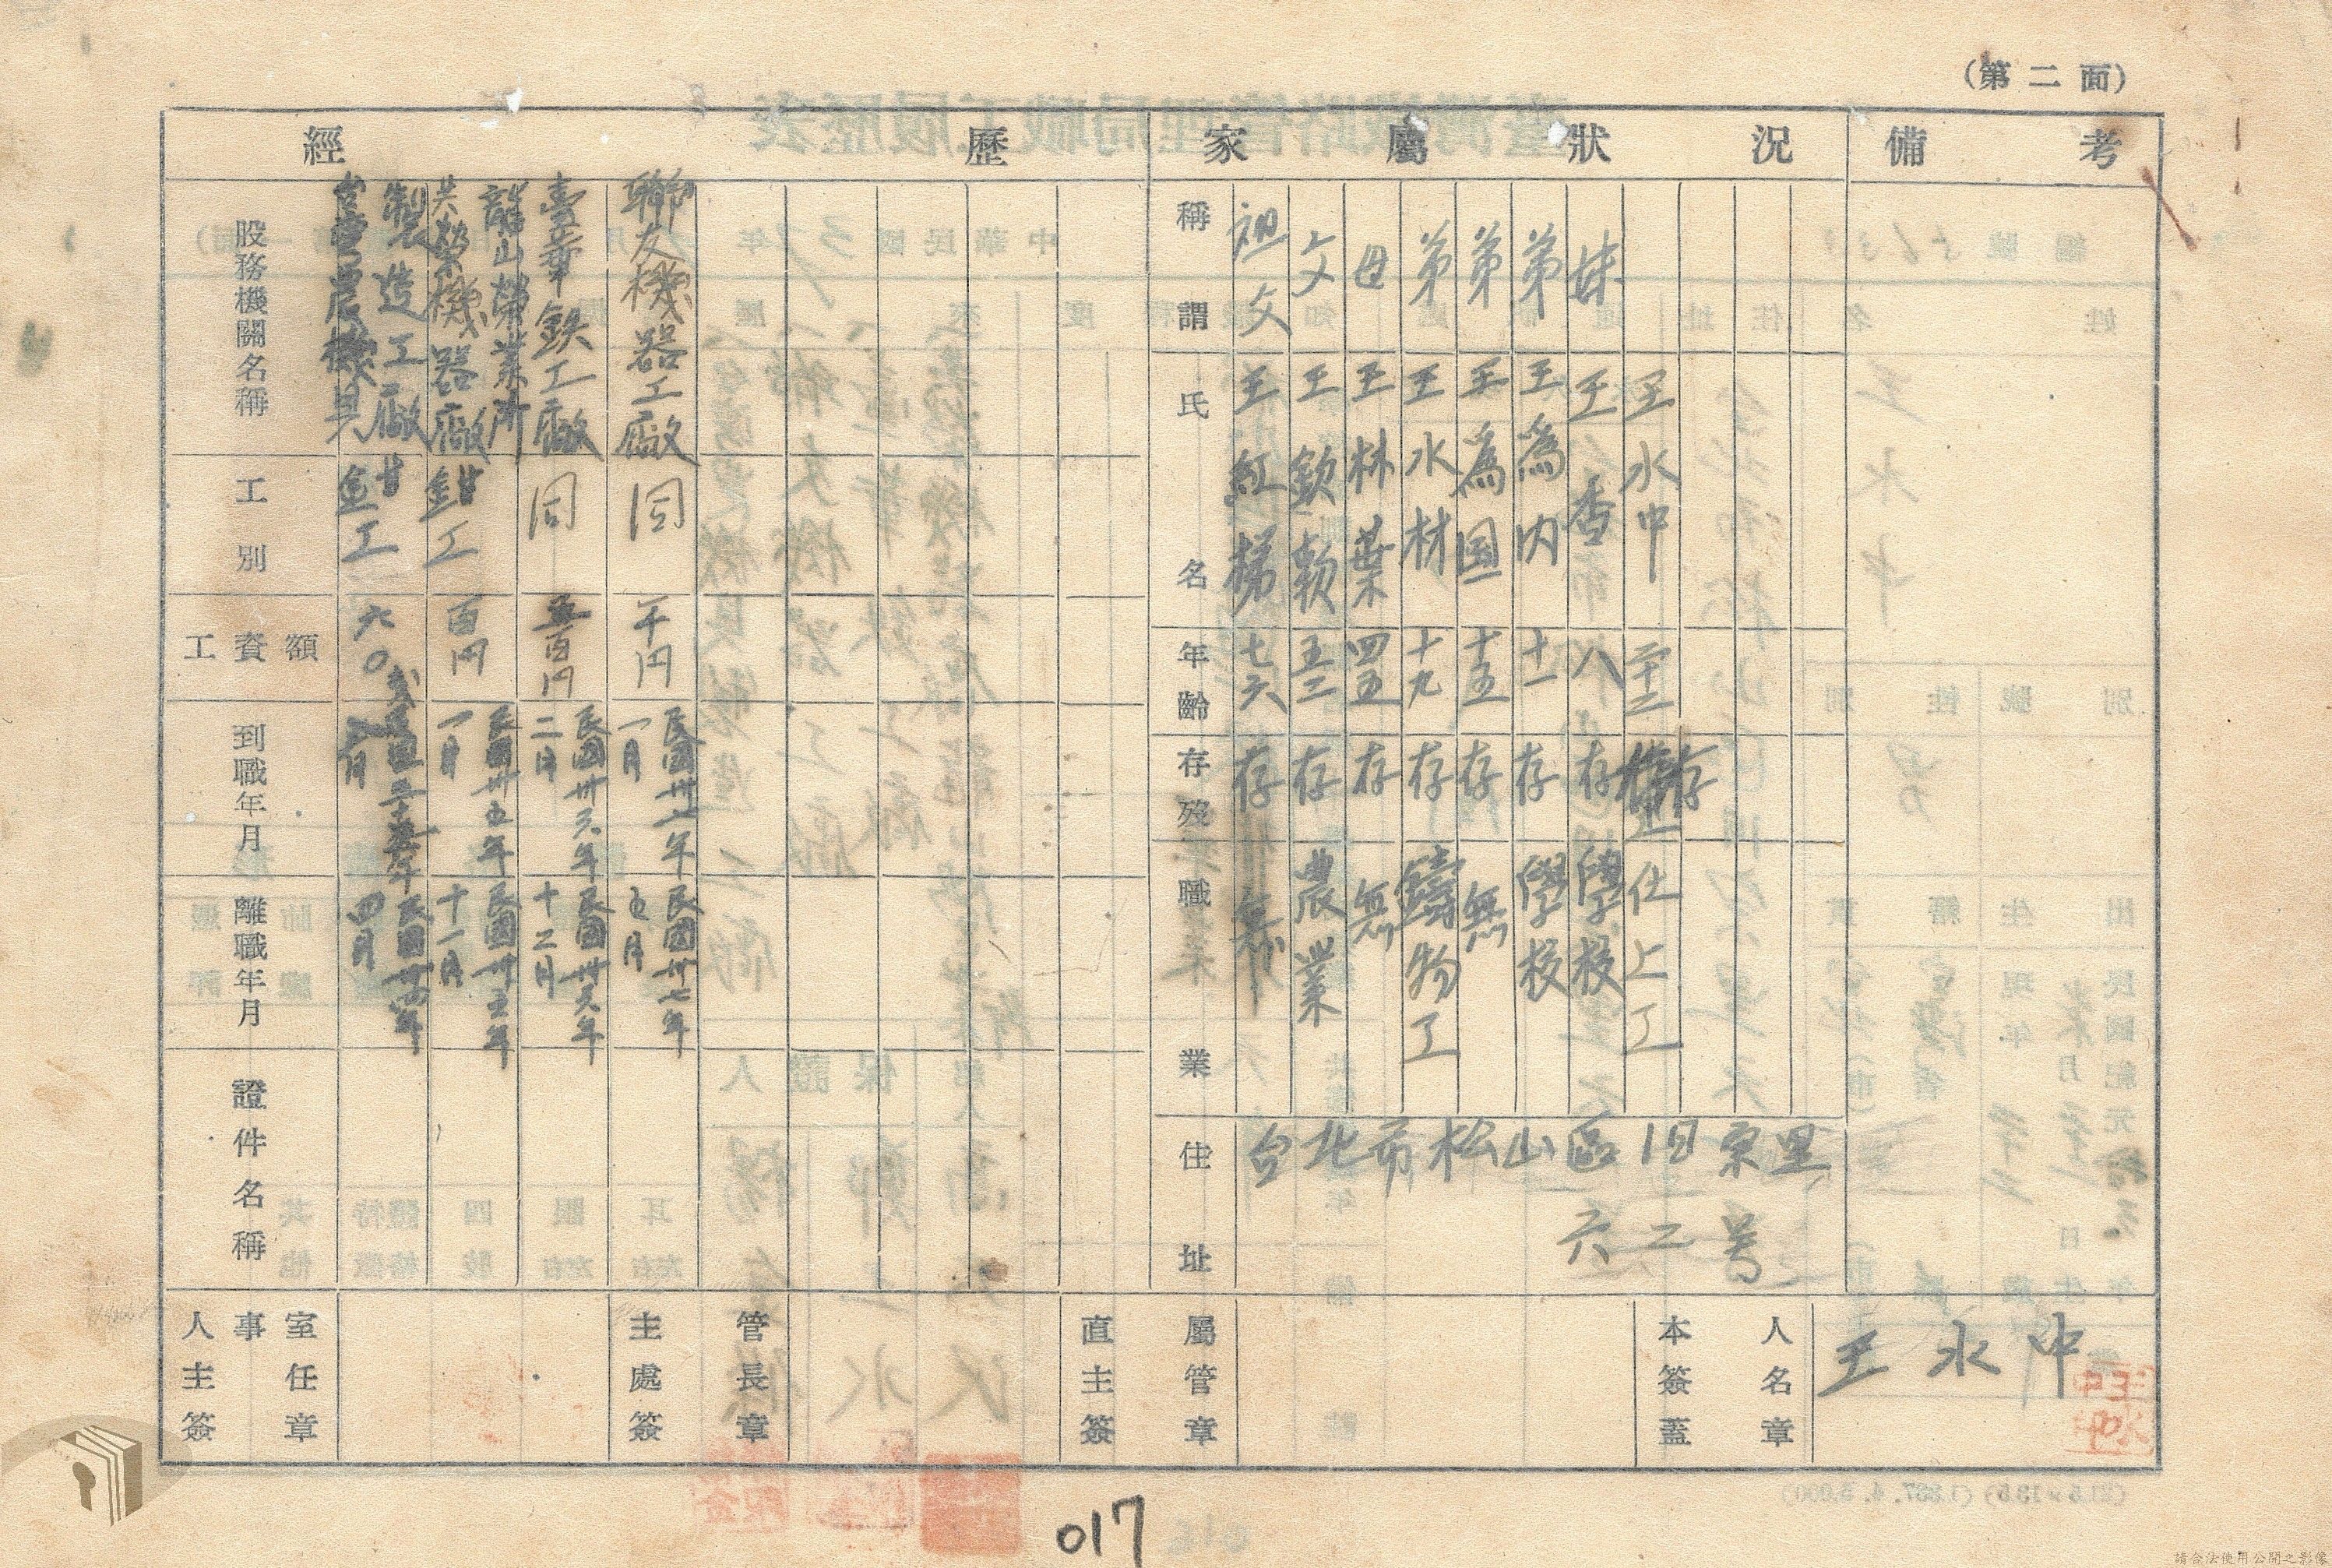 (第二面)
經歷
家屬狀況
備考
股務機關名稱
台灣農機具
製造工廠
共榮機器廠
龍山榮業所
臺華鉄工廠
聯友機器工廠
工別
鉗工
鉗工
同
同
工資額
六〇
百円
五百円
千円
到職年月
民國三十年
民國卅五年
一月
民國卅六年
二月
民國卅七年
一月
離職年月
民國卅四年
四月
民國卅五年
十一月
民國卅六年
十二月
民國卅七年
五月
證件名稱
稱謂
祖父
父
母
弟
弟
弟
妹
氏名
王紅梯
王欽賴
王林葉
王水材
王為国
王為内
王香
王水中
年齡
七六
五二
四五
十九
十五
十一
八
二十二
存歿
存
存
存
存
存
存
存
存
職業
無
農業
無
鑄物工
無
學校
學校
仕上工
住址
台北市松山區旧宗里
六二号
人事室主任簽章
主管處長簽章
直屬主管簽章
本人簽名蓋章
王水中
王水中
017
請合法使用公開之影像